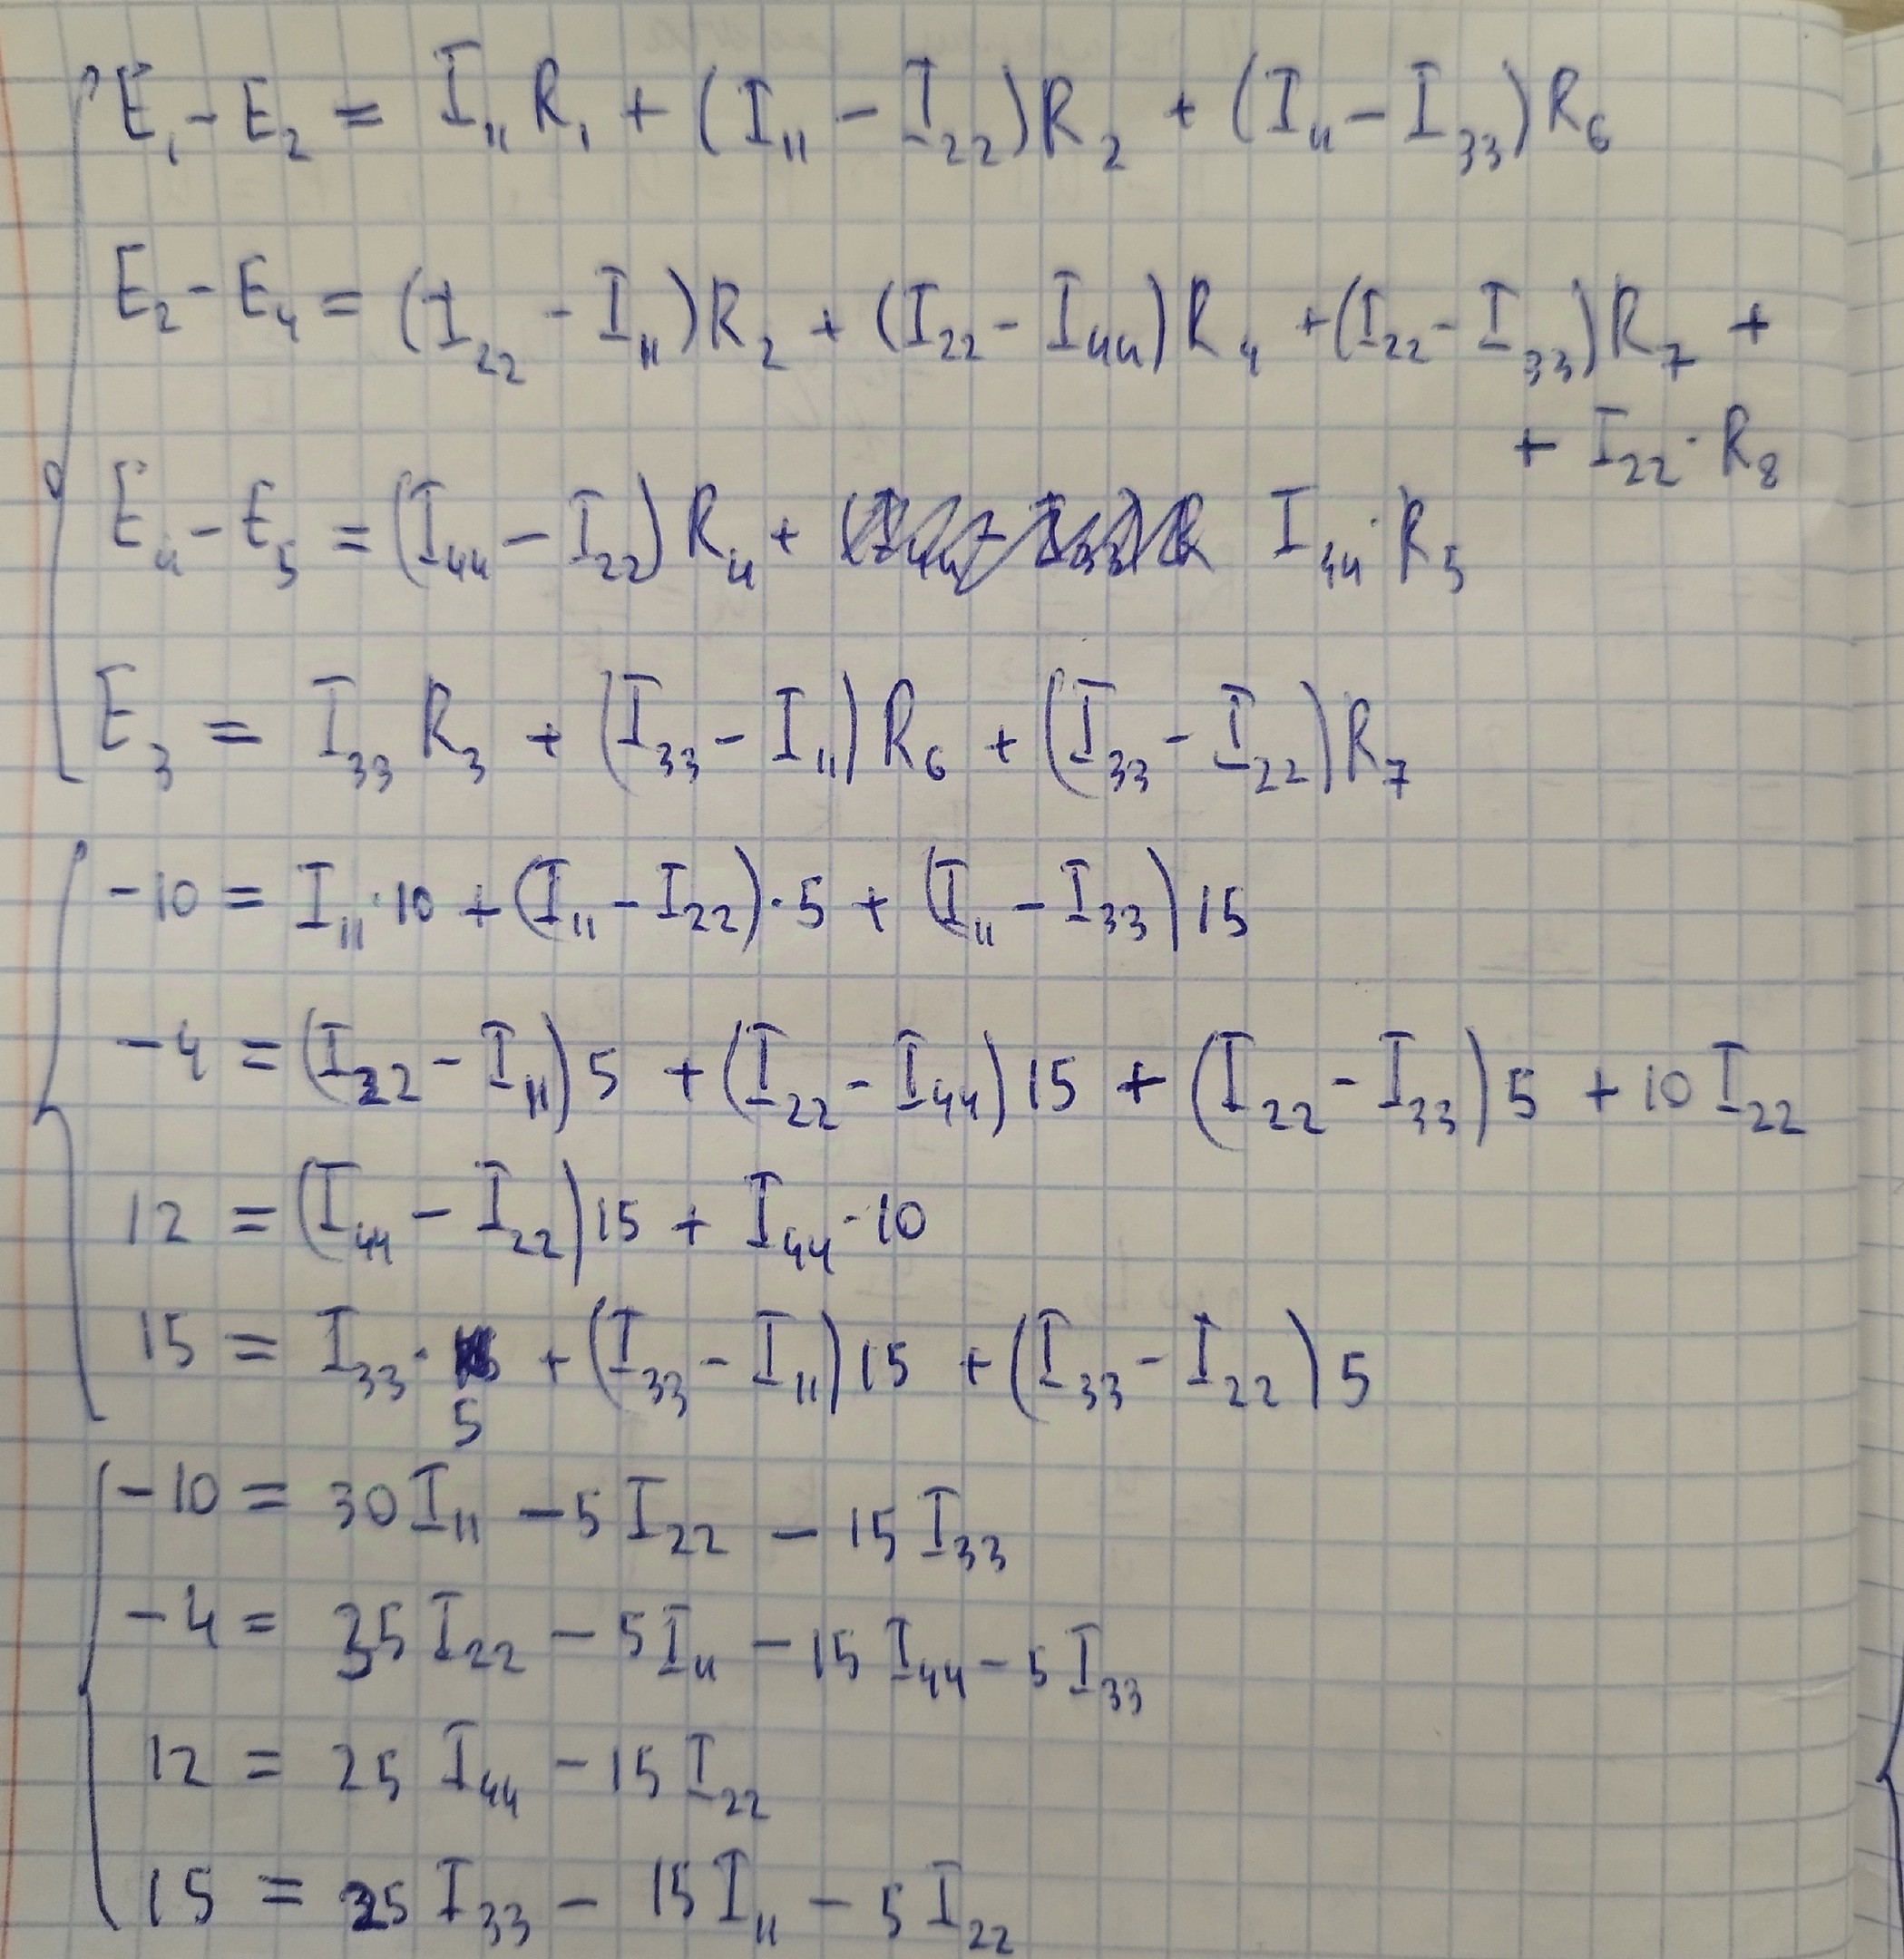 E₁ - E₂ = I₁₁ R₁ + (I₁₁ - I₂₂)R₂ + (I₁₁ - I₃₃)R₆
E₂ - E₄ = (I₂₂ - I₁₁)R₂ + (I₂₂ - I₄₄)R₄ + (I₂₂ - I₃₃)R₇ +
+ I₂₂ · R₈
E₄ - E₅ = (I₄₄ - I₂₂)R₄ + I₄₄ · R₅
E₃ = I₃₃ R₃ + (I₃₃ - I₁₁)R₆ + (I₃₃ - I₂₂)R₇
-10 = I₁₁ · 10 + (I₁₁ - I₂₂) · 5 + (I₁₁ - I₃₃)15
-4 = (I₂₂ - I₁₁)5 + (I₂₂ - I₄₄)15 + (I₂₂ - I₃₃)5 + 10 I₂₂
12 = (I₄₄ - I₂₂)15 + I₄₄ · 10
15 = I₃₃ · 5 + (I₃₃ - I₁₁)15 + (I₃₃ - I₂₂)5
-10 = 30 I₁₁ - 5 I₂₂ - 15 I₃₃
-4 = 35 I₂₂ - 5 I₁₁ - 15 I₄₄ - 5 I₃₃
12 = 25 I₄₄ - 15 I₂₂
15 = 25 I₃₃ - 15 I₁₁ - 5 I₂₂